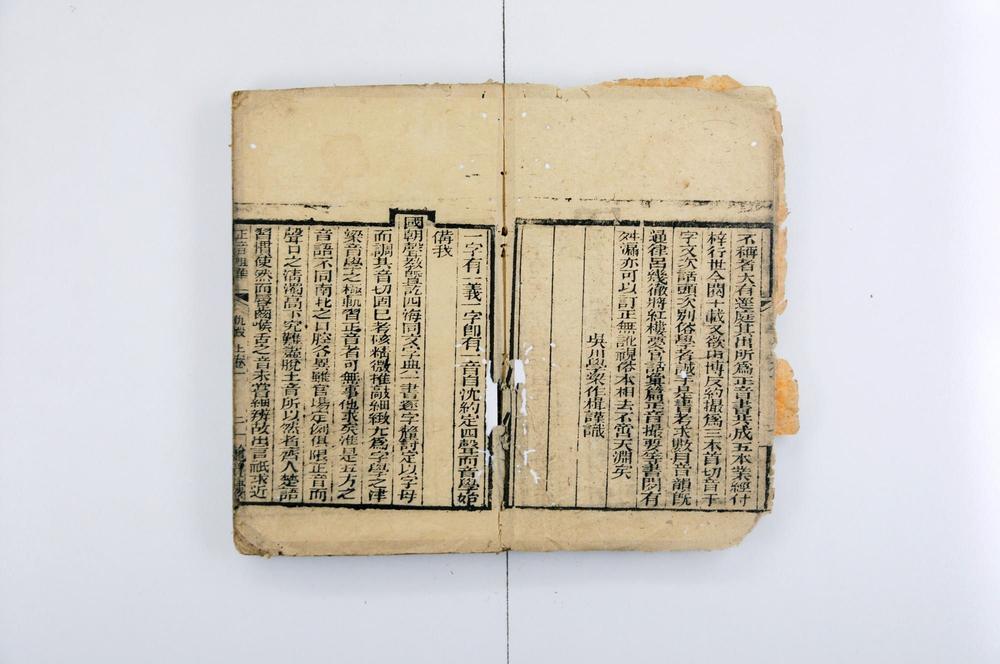 不稱者大有逕庭其出所爲正音書共成五本業經付
梓行世今閱十載又欲由博反約撮爲三本首切音千
字文次話頭次別俗學者誠于是書求數月音韻旣
通律呂幾徹將紅樓夢官話彙篇正音撮要等書閱有
舛漏亦可以訂正無訛視俗本相去不啻天淵矣
吳川學梁作楫謹識
一字有一義一字卽有一音自沈約定四聲而音學始
備我
國朝聲教暨訖四海同文字典一書逐字釐訂定以字母
而調其音切固已考核精微推敲細緻允爲字學之津
梁音學之極軌習正音者可無事他求矣惟是五方之
音語不同南北之口腔各異雖官場定例俱限正音而
聲口之清濁高下究難盡脫土音所以然者齊人楚語
習慣使然而唇齒喉舌之音未嘗細辨故出言祇求近
正音
卷上